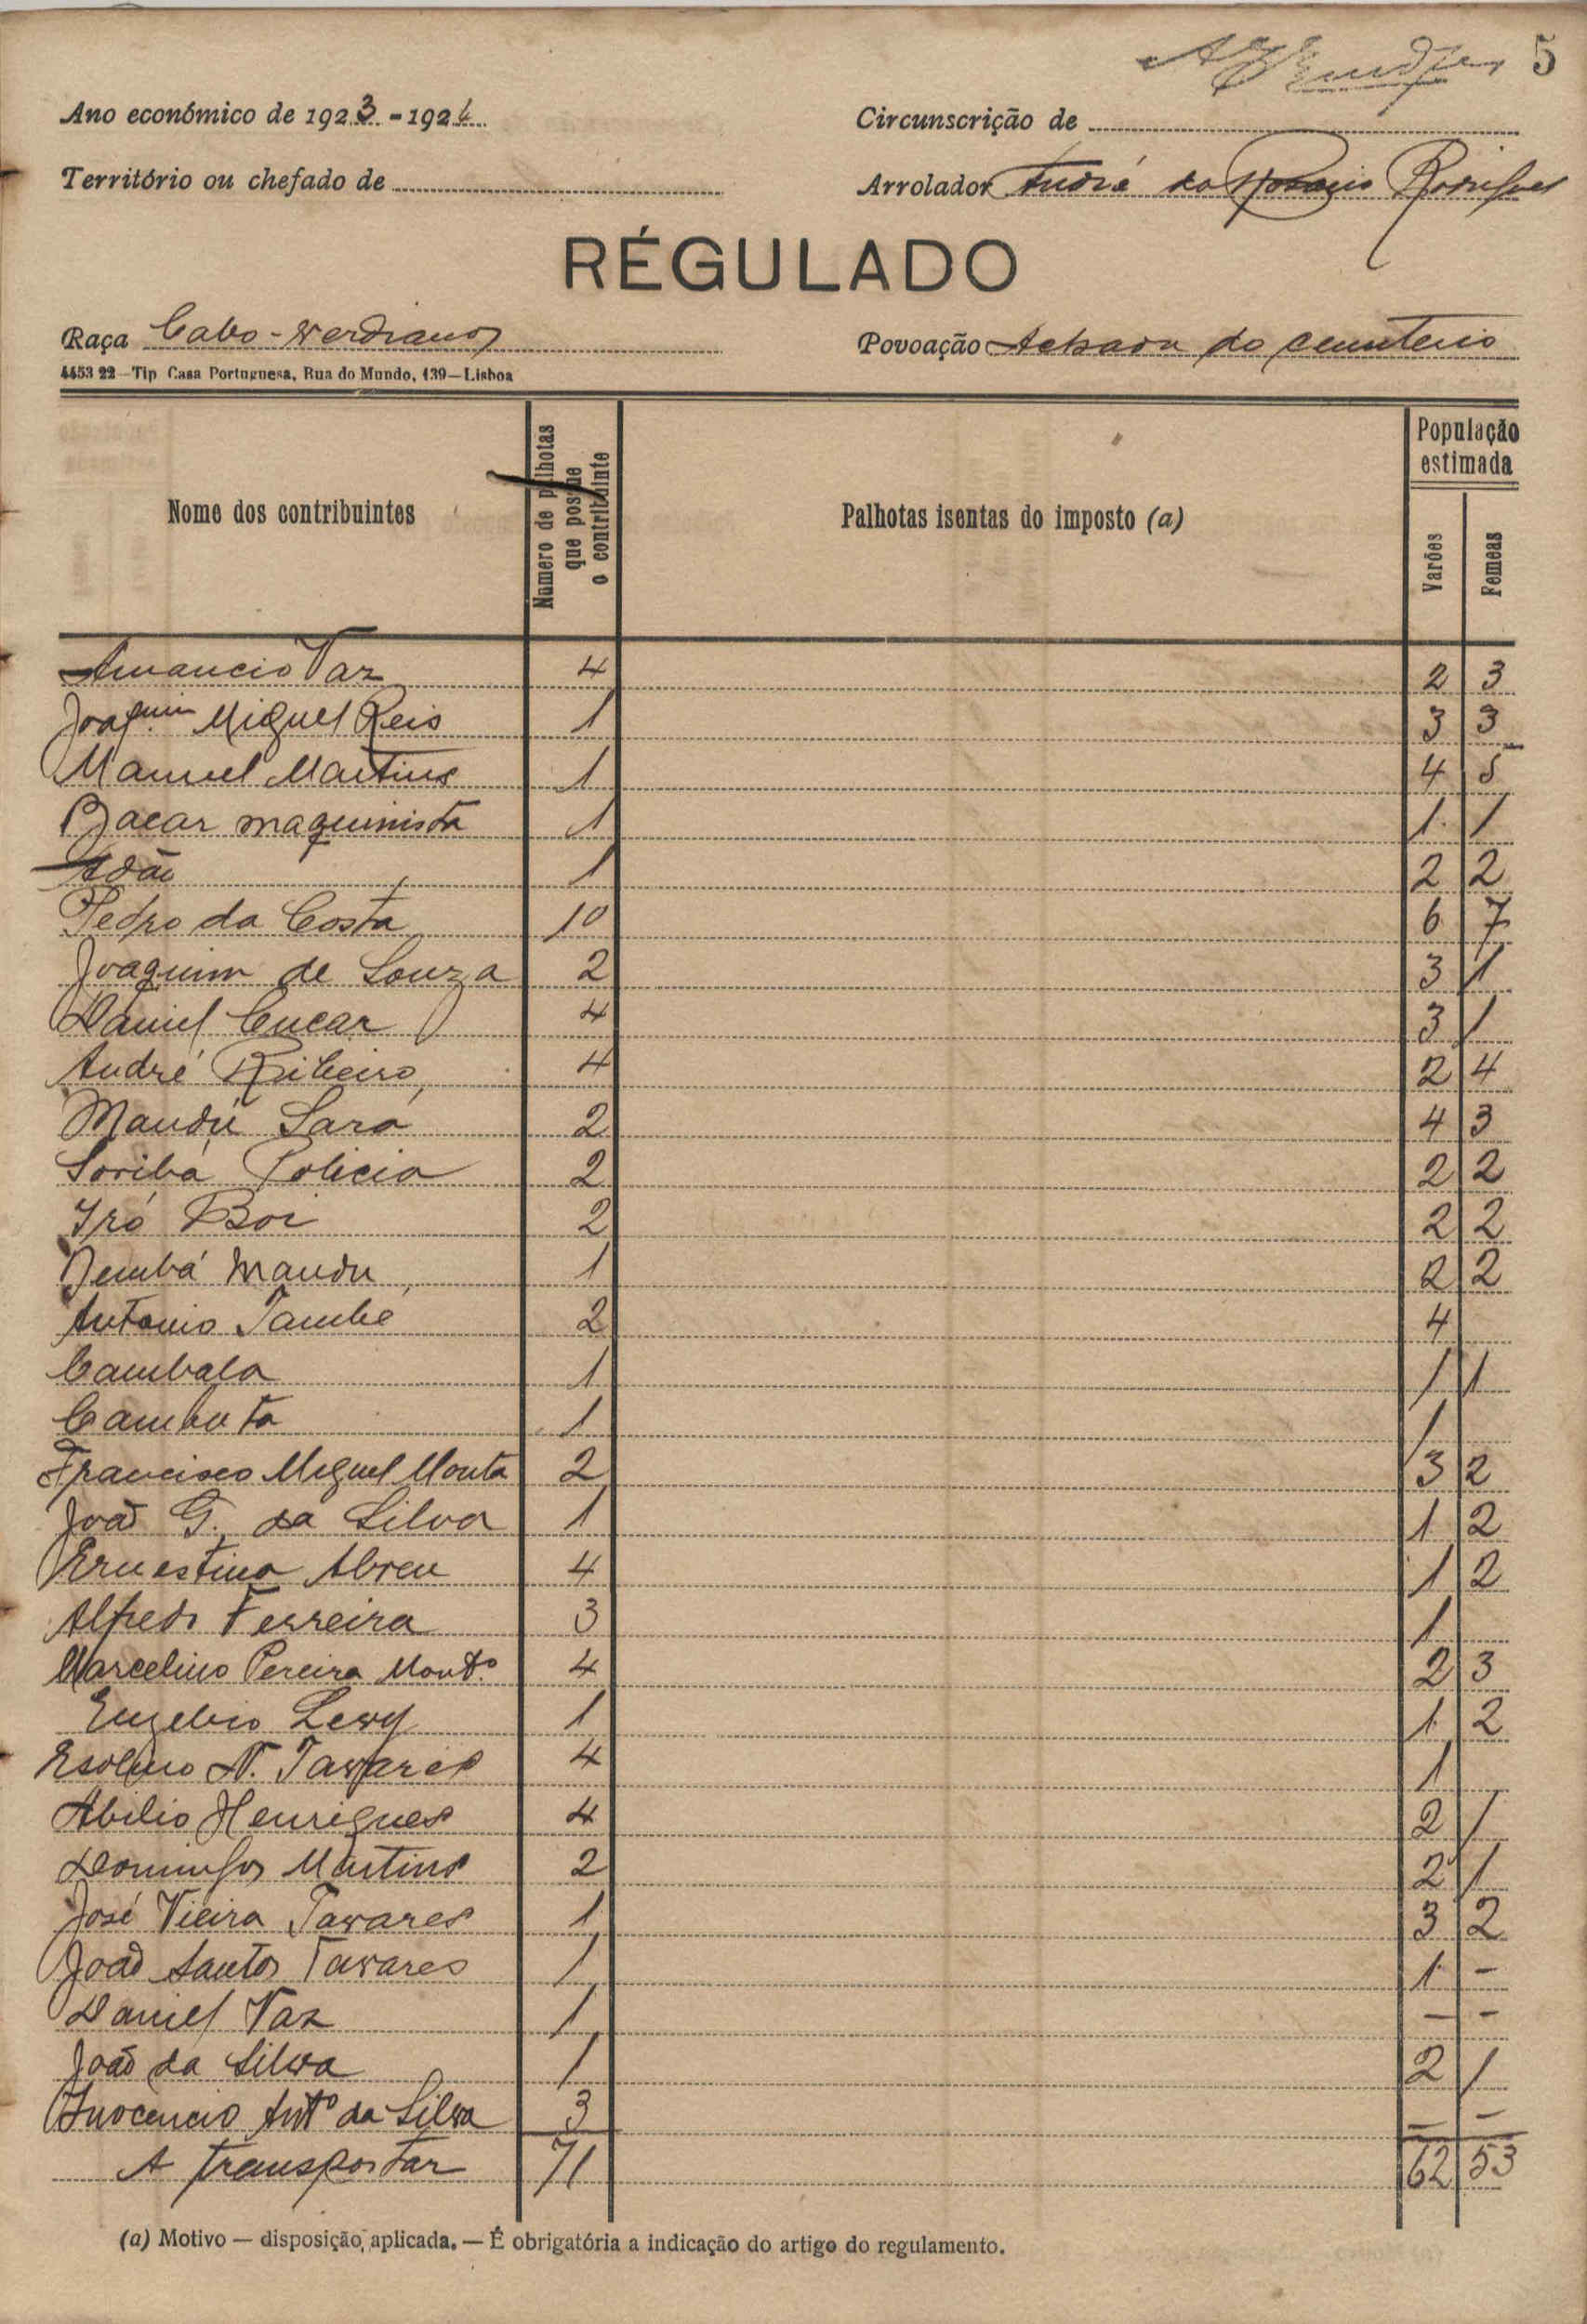 5
Ano económico de 1923-1924
Circunscrição de
Território ou chefado de
Arrolador André do Rosario Rodrigues
RÉGULADO
Raça Cabo-verdianos
Povoação Achada do cemiterio
4453 22—Tip Casa Portuguesa, Rua do Mundo, 139—Lisboa
Nome dos contribuintes
Numero de palhotas que possue o contribuinte
Palhotas isentas do imposto (a)
População estimada
Varões
Femeas
Amancio Vaz 4 2 3
Joaquim Miguel Reis 1 3 3
Manuel Martins 1 4 5
Bacar maquinista 1 1 1
Adão 1 2 2
Pedro da Costa 10 6 7
Joaquim de Souza 2 3 1
Daniel Cucar 4 3 1
André Ribeiro 4 2 4
Mandú Sará 2 4 3
Soribá Policia 2 2 2
Iró Boi 2 2 2
Dembá Mandu 1 2 2
Antonio Tambe 2 4
Cambala 1 1 1
Cambuta 1 1
Francisco Miguel Monta 2 3 2
João G. da Silva 1 1 2
Ernestina Abreu 4 1 2
Alfredo Ferreira 3 1
Marcelino Pereira Montº 4 2 3
Euzebio Levy 1 1 2
N. Tavares 4 1
Abilio Henriques 4 2 1
Domingos Martins 2 2 1
José Vieira Tavares 1 3 2
João Santos Tavares 1 1 -
Daniel Vaz 1 - -
João da Silva 1 2 1
Inocencio Antº da Silva 3 - -
A transportar 71 62 53
(a) Motivo — disposição aplicada. — É obrigatória a indicação do artigo do regulamento.